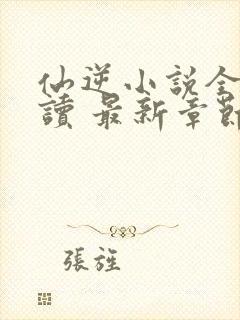 仙逆小說全
讀 最新章節
張旌